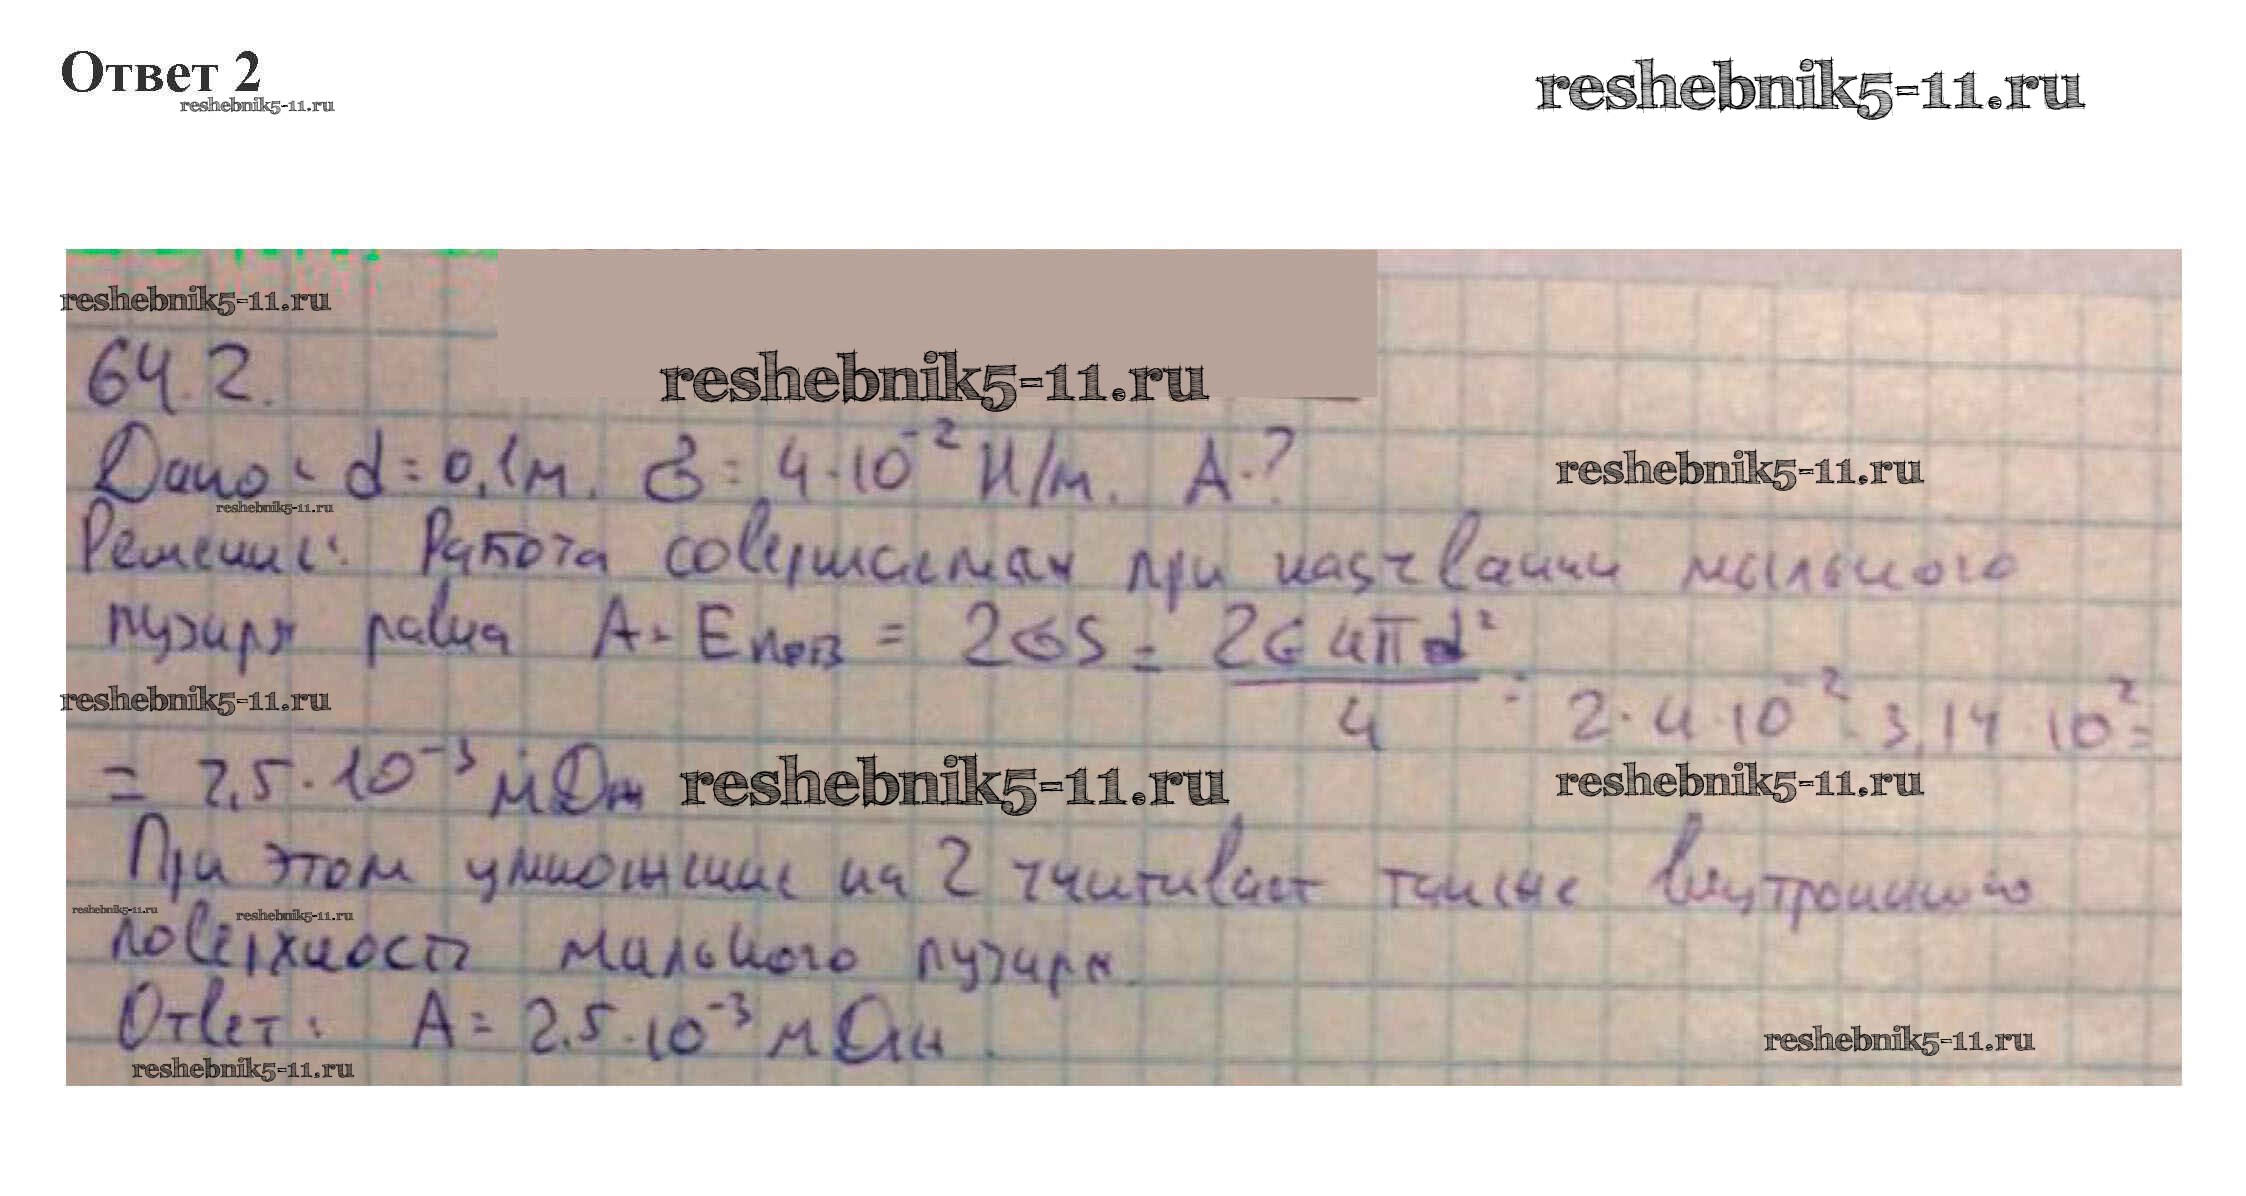 Ответ 2
reshebnik5-11.ru
reshebnik5-11.ru
reshebnik5-11.ru
64.2.
reshebnik5-11.ru
Дано: d = 0,1м. σ = 4·10⁻² Н/м. A-?
reshebnik5-11.ru
reshebnik5-11.ru
Решение: Работа совершаемая при надувании мыльного
пузыря равна A = Eпов = 2σS = 2σ4πd²/4 = 2·4·10⁻²·3,14·10²=
reshebnik5-11.ru
= 2,5·10⁻³ мДж
reshebnik5-11.ru
reshebnik5-11.ru
При этом умножение на 2 учитывает также внутреннюю
reshebnik5-11.ru
reshebnik5-11.ru
поверхность мыльного пузыря.
Ответ: A = 2.5·10⁻³ мДж.
reshebnik5-11.ru
reshebnik5-11.ru